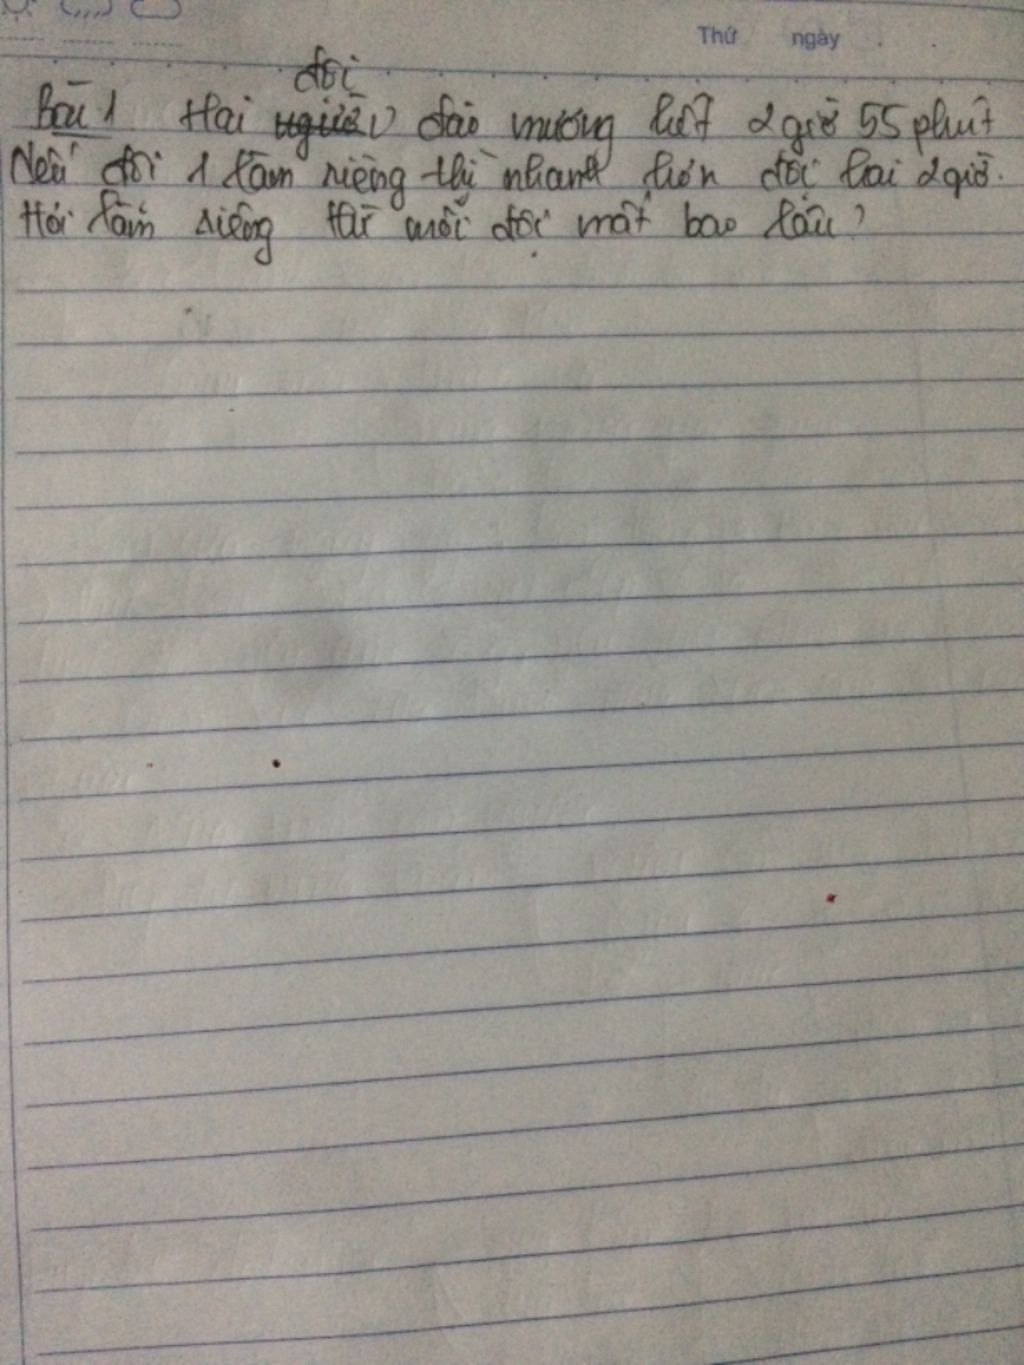 Thứ ngày
đội
Bài 1 Hai người đào mương hết 2 giờ 55 phút
Nếu đội 1 làm riêng thì nhanh hơn đội hai 2 giờ.
Hỏi làm riêng thì mỗi đội mất bao lâu?